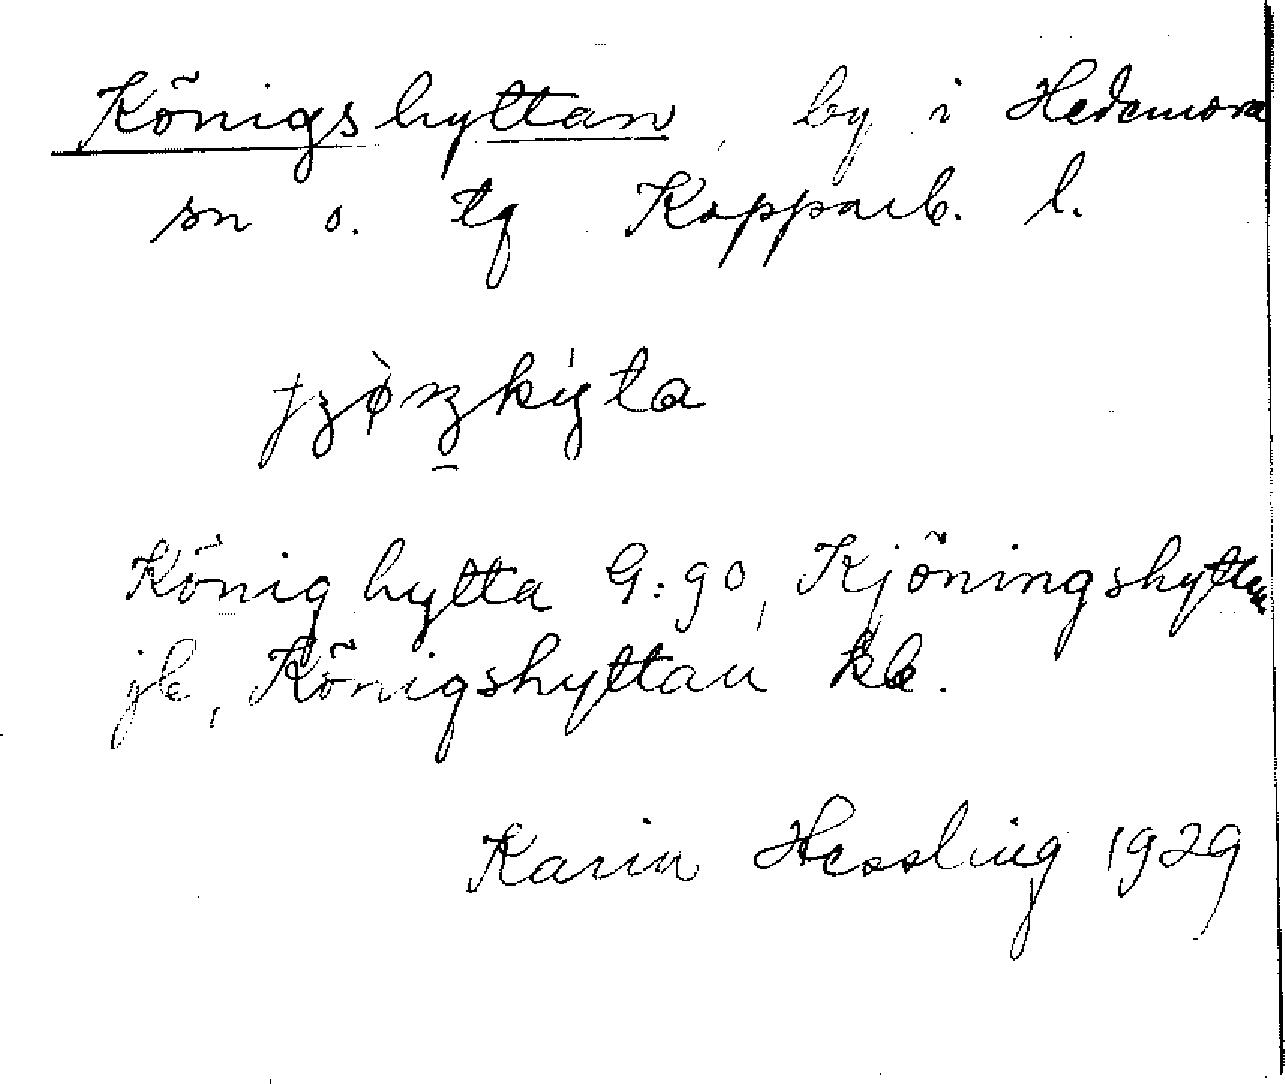 Königshyttan, by i Hedemora
sn o. tg Kopparb. l.
Könighytta G:go, Kjöningshyttan
jb, Königshyttan kb.
Karin Hessling 1929